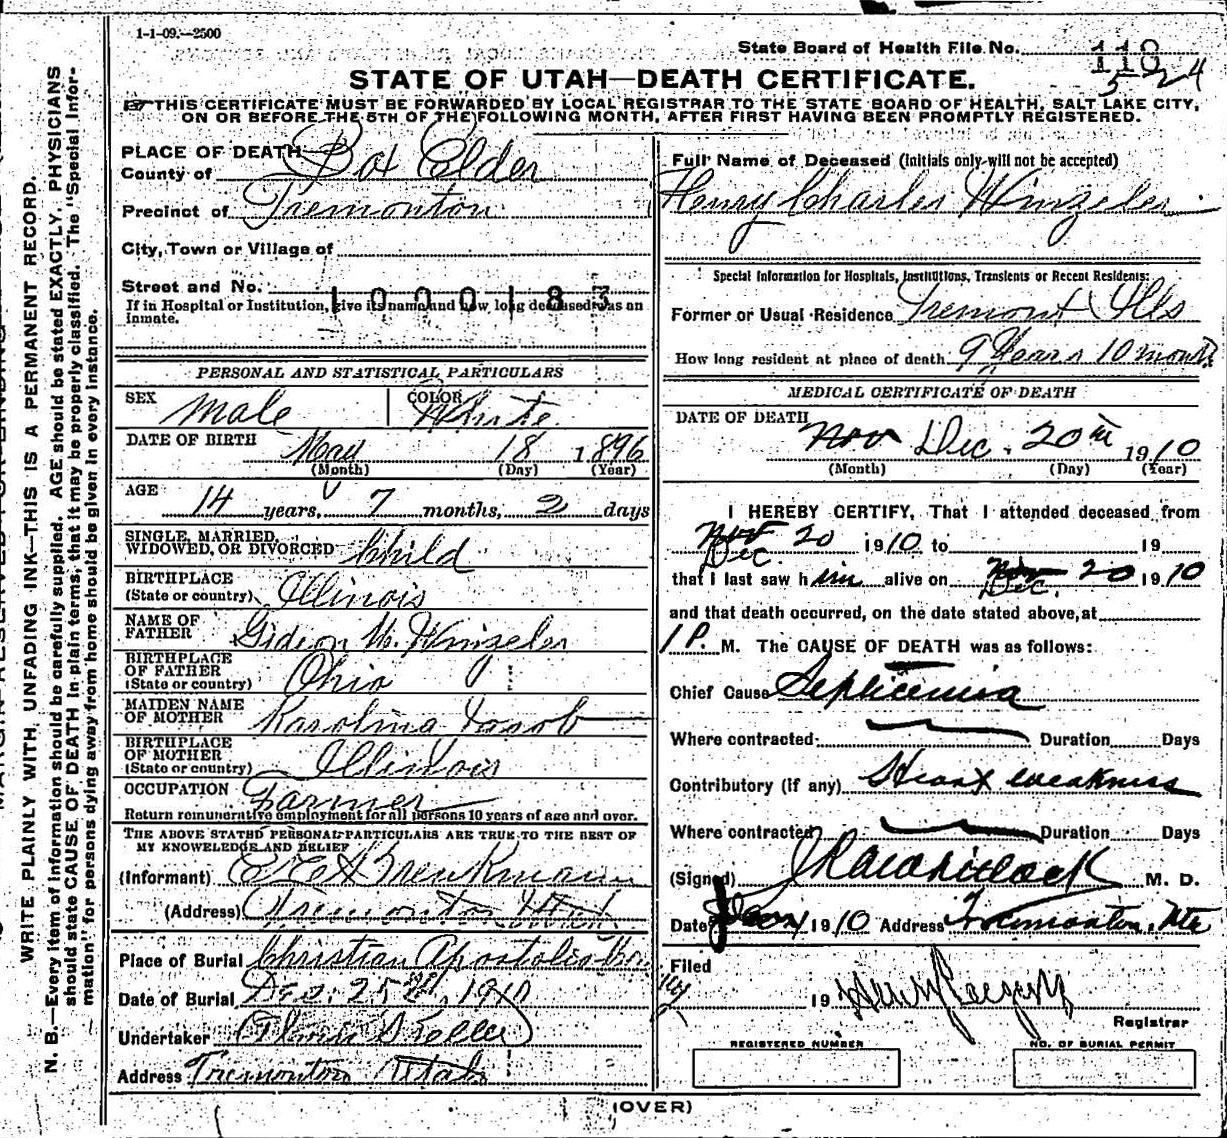 1-1-09.—2500
State Board of Health File No. 110
5 24
STATE OF UTAH—DEATH CERTIFICATE.
☞THIS CERTIFICATE MUST BE FORWARDED BY LOCAL REGISTRAR TO THE STATE BOARD OF HEALTH, SALT LAKE CITY,
ON OR BEFORE THE 5TH OF THE FOLLOWING MONTH, AFTER FIRST HAVING BEEN PROMPTLY REGISTERED.
WRITE PLAINLY WITH UNFADING INK—THIS IS A PERMANENT RECORD.
N. B.—Every item of information should be carefully supplied. AGE should be stated EXACTLY. PHYSICIANS
should state CAUSE OF DEATH in plain terms, that it may be properly classified. The "Special Infor-
mation" for persons dying away from home should be given in every instance.
PLACE OF DEATH
County of Box Elder
Precinct of Tremonton
City, Town or Village of
Street and No.
1000183
If in Hospital or Institution, give its name and how long deceased was an
inmate.
PERSONAL AND STATISTICAL PARTICULARS
SEX Male COLOR White
DATE OF BIRTH May 18 1896
(Month) (Day) (Year)
AGE 14 years, 7 months, 2 days
SINGLE, MARRIED,
WIDOWED, OR DIVORCED Child
BIRTHPLACE
(State or country) Illinois
NAME OF
FATHER Gideon Winzeler
BIRTHPLACE
OF FATHER
(State or country) Ohio
MAIDEN NAME
OF MOTHER Karolina
BIRTHPLACE
OF MOTHER
(State or country) Illinois
OCCUPATION Farmer
Return remunerative employment for all persons 10 years of age and over.
THE ABOVE STATED PERSONAL PARTICULARS ARE TRUE TO THE BEST OF
MY KNOWELEDGE AND BELIEF
(Informant)
(Address) Tremonton Utah
Place of Burial Christian Apostolic
Date of Burial Dec. 25 1910
Undertaker
Address Tremonton Utah
Full Name of Deceased (Initials only will not be accepted)
Henry Charles Winzeler
Special Information for Hospitals, Institutions, Transients or Recent Residents:
Former or Usual Residence Tremont Ills
How long resident at place of death 9 Years 10 months
MEDICAL CERTIFICATE OF DEATH
DATE OF DEATH
Nov Dec. 20th 1910
(Month) (Day) (Year)
I HEREBY CERTIFY, That I attended deceased from
Nov Dec. 20 1910 to 19
that I last saw him alive on Nov Dec. 20 1910
and that death occurred, on the date stated above, at
1 P. M. The CAUSE OF DEATH was as follows:
Chief Cause Septicemia
Where contracted Duration Days
Contributory (if any) Heart weakness
Where contracted Duration Days
(Signed) M. D.
Date 1910 Address Tremonton, Ut
Filed
19
Registrar
REGISTERED NUMBER
NO. OF BURIAL PERMIT
(OVER)